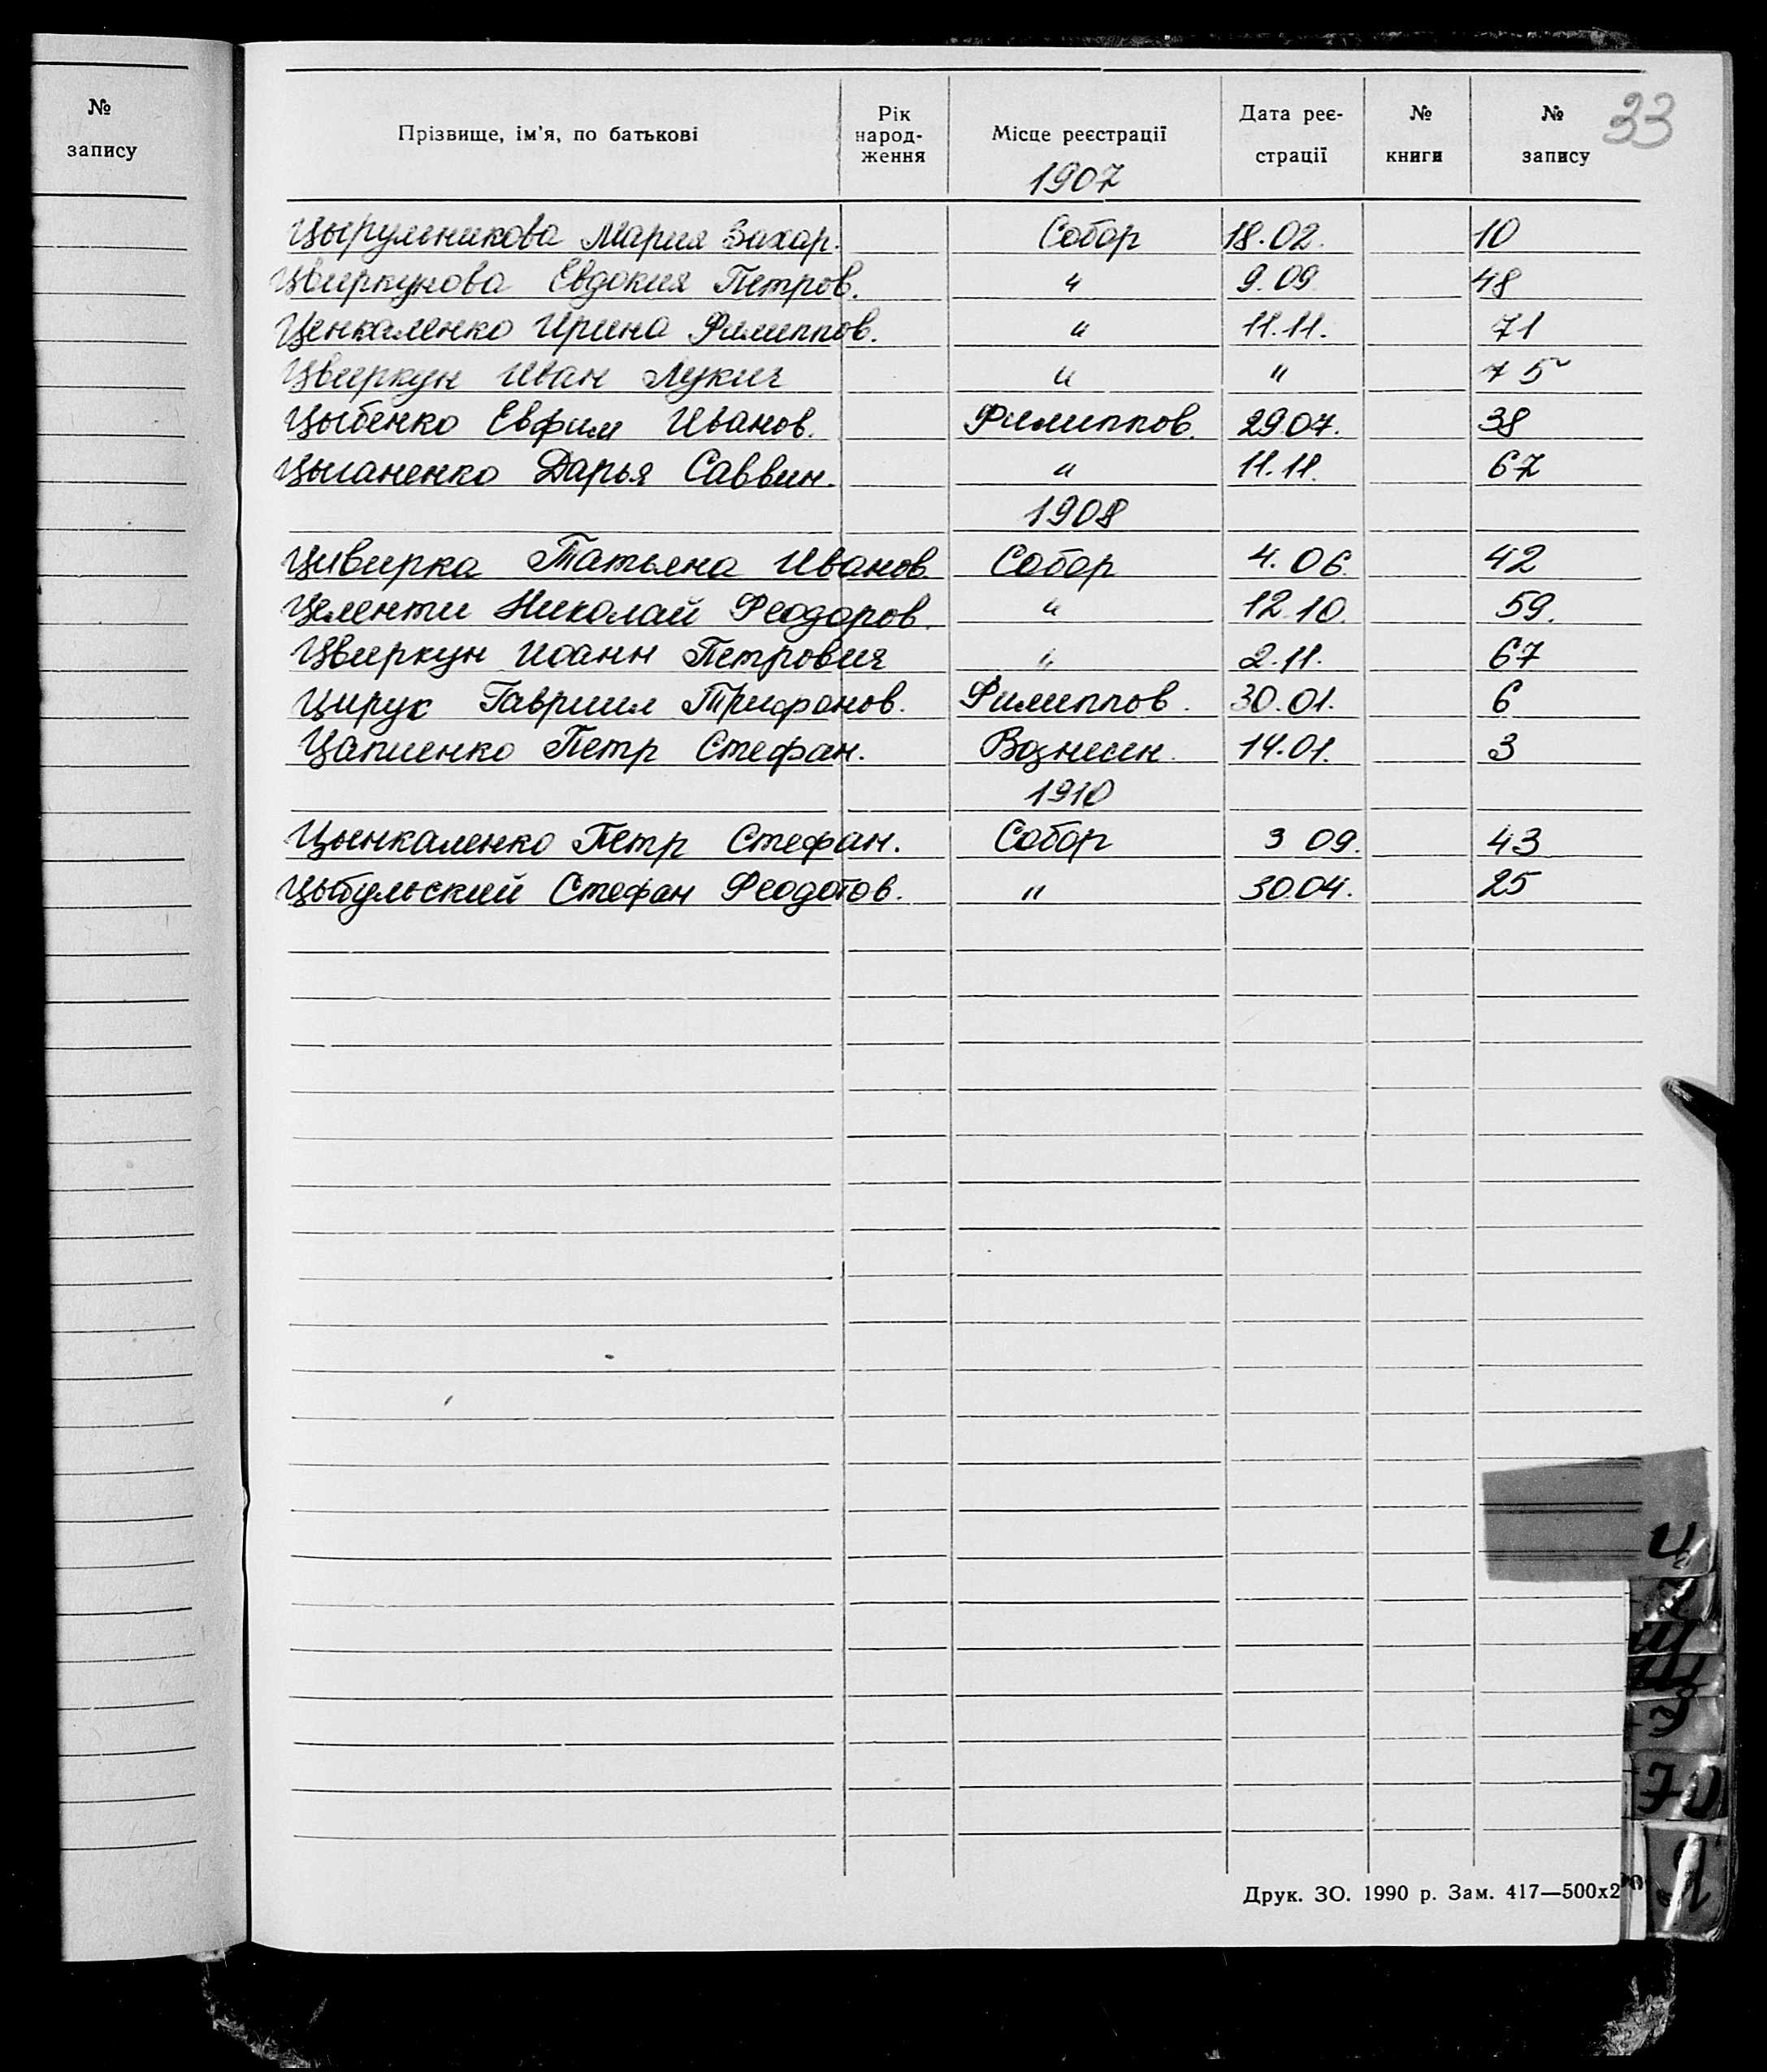 №
запису
33
Прізвище, ім'я, по батькові Рік народ-ження Місце реєстрації Дата реє-страції № книги № запису
1907
Цырульникова Мария Захар. Собор 18.02. 10
Цвиркунова Евдокия Петров. " 9.09. 48
Ценкаленко Ирина Филиппов. " 11.11. 71
Цвиркун Иван Лукич " " 75
Цыбенко Евфим Иванов. Филиппов. 29 07. 38
Цыганенко Дарья Саввин. " 11.11. 67
1908
Цивирка Татьяна Иванов. Собор 4.06. 42
Целенти Николай Феодоров. " 12.10. 59.
Цвиркун Иоанн Петрович " 2.11. 67
Цирук Гавриил Трифонов. Филиппов. 30.01. 6
Цапиенко Петр Стефан. Вознесен. 14.01. 3
1910
Цынкаленко Петр Стефан. Собор 3 09. 43
Цыбульский Стефан Феодотов. " 30.04. 25
Друк. ЗО. 1990 р. Зам. 417—500х2
Ц
Ш
Щ
Э
Ю
Я